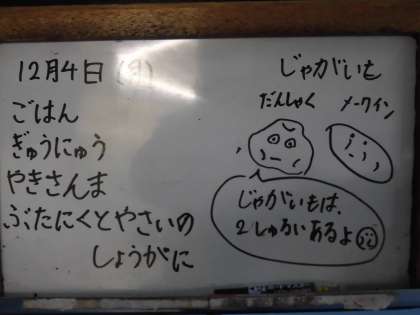 12月4日(月)
ごはん
ぎゅうにゅう
やきさんま
ぶたにくとやさいの
しょうがに
じゃがいも
だんしゃく
メークイン
じゃがいもは、
2しゅるいあるよ